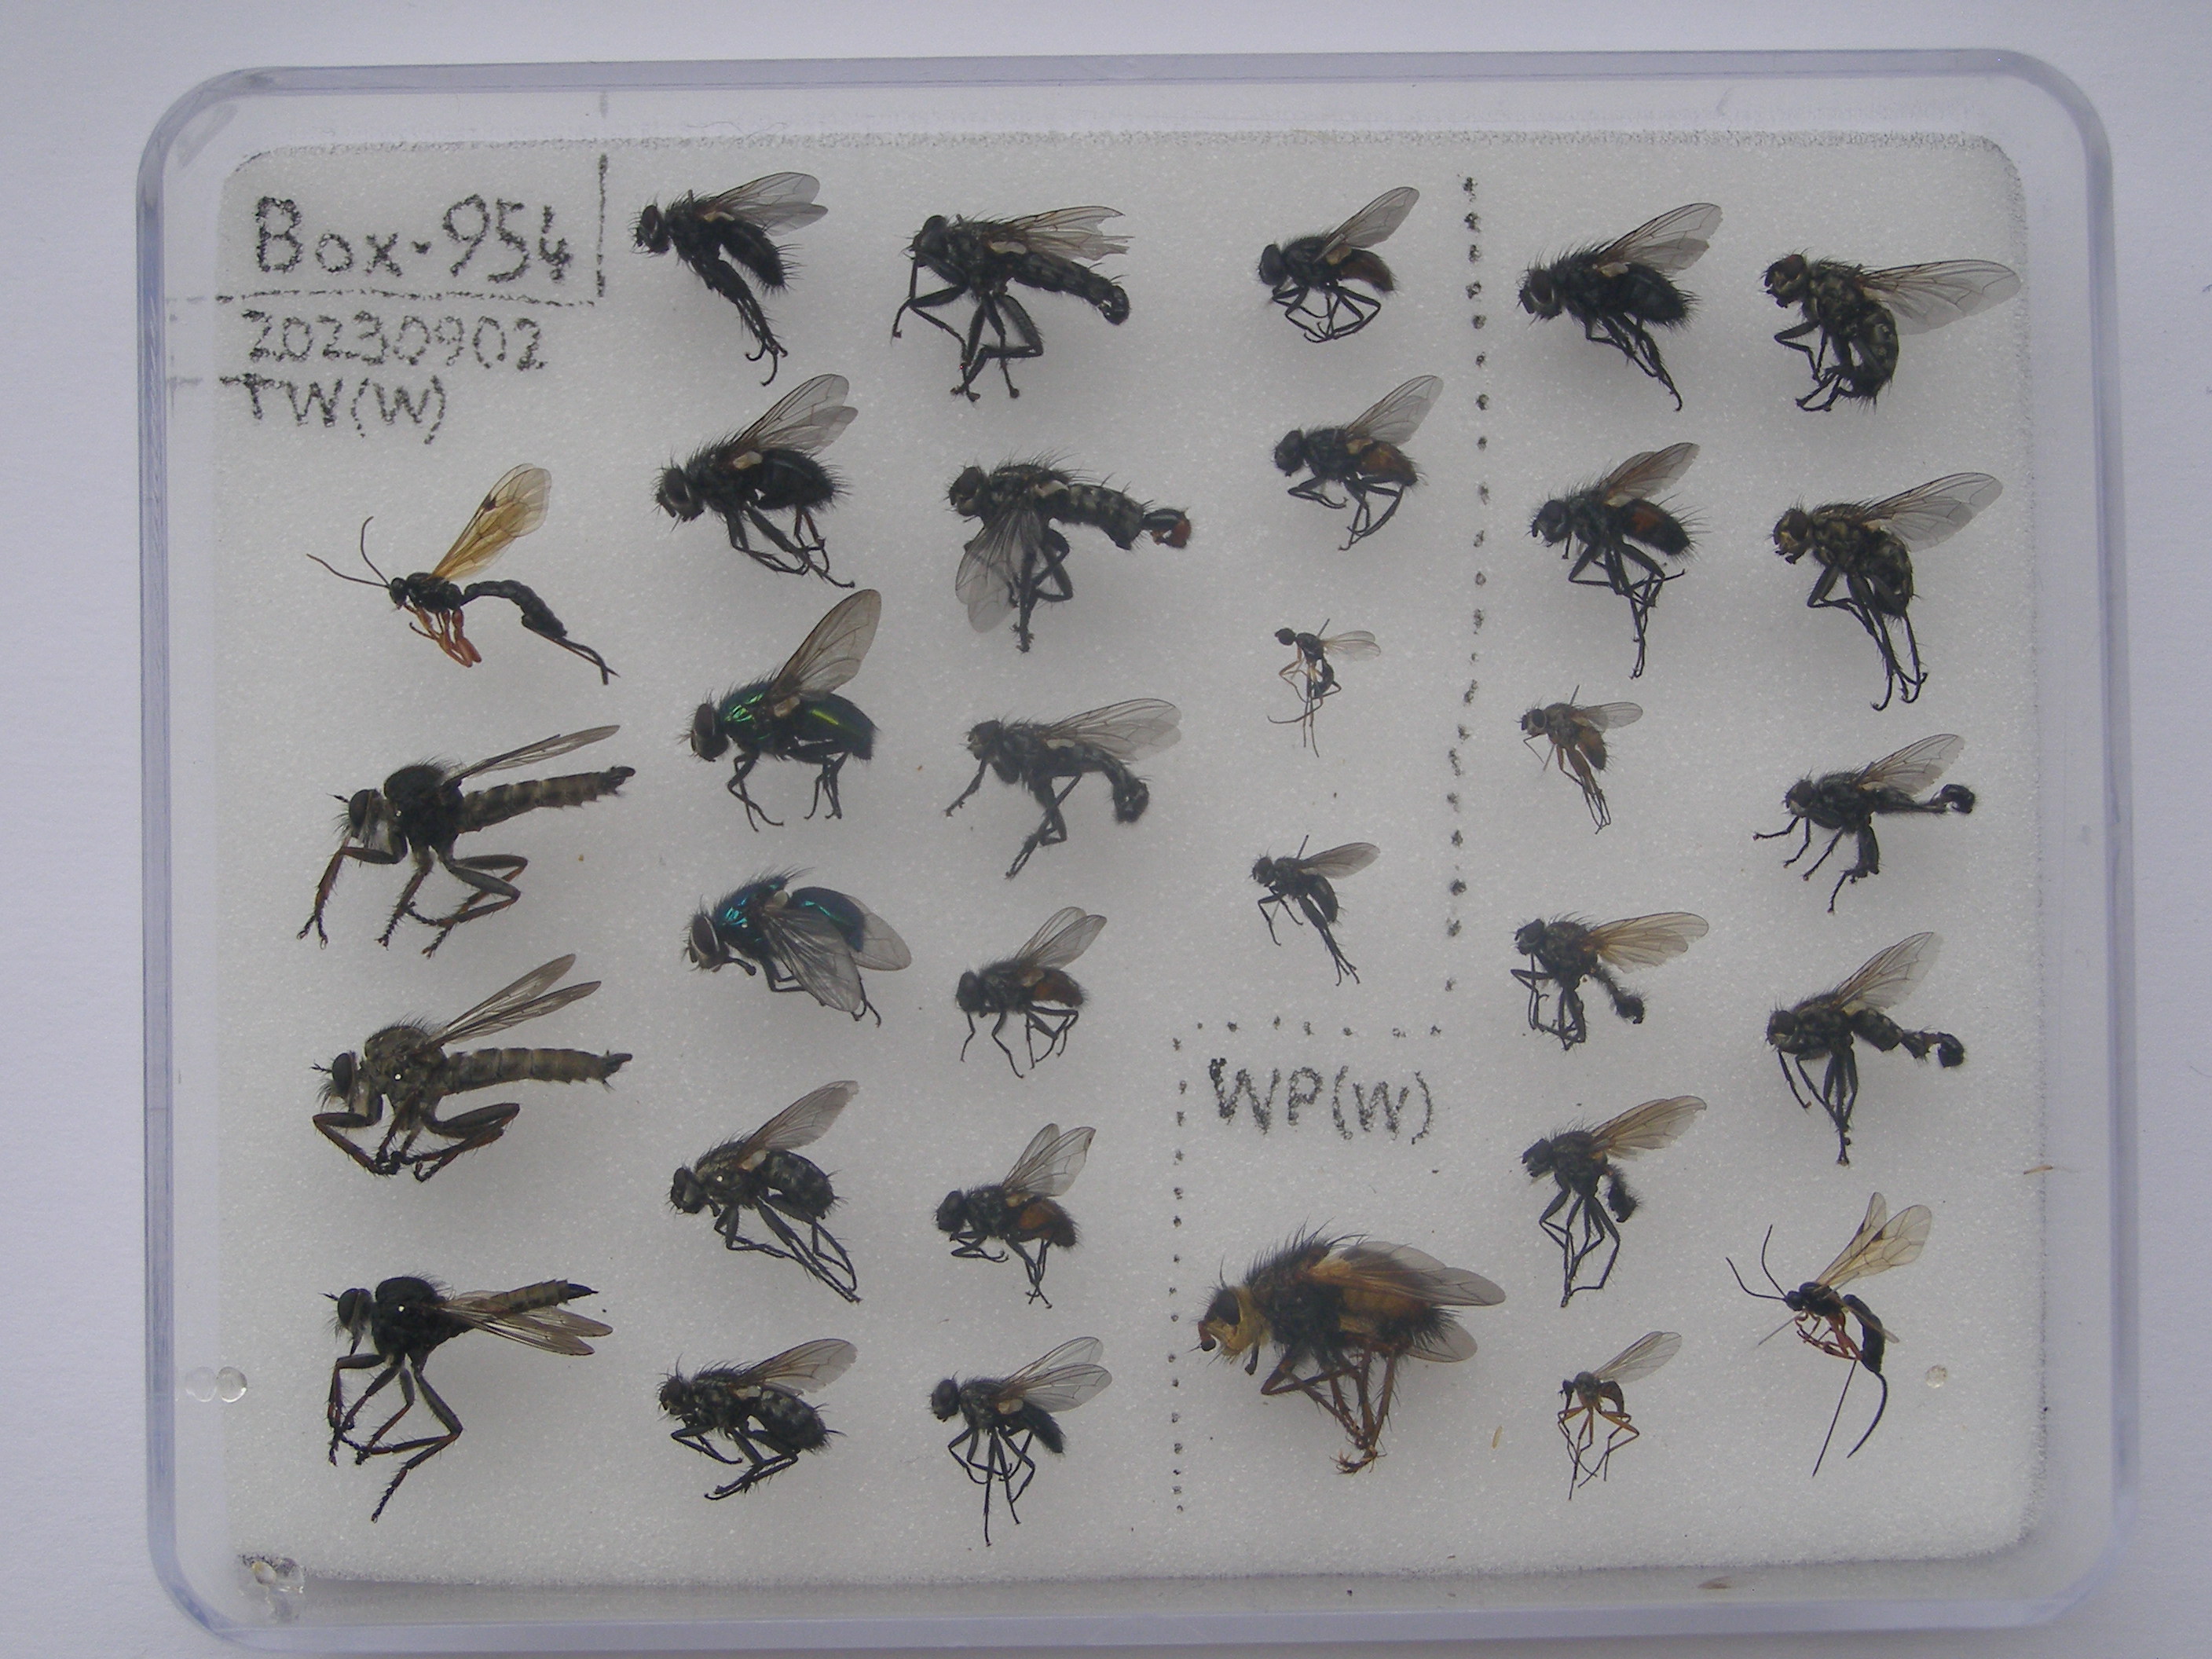 Box-954
20230902
TW(W)
WP(W)